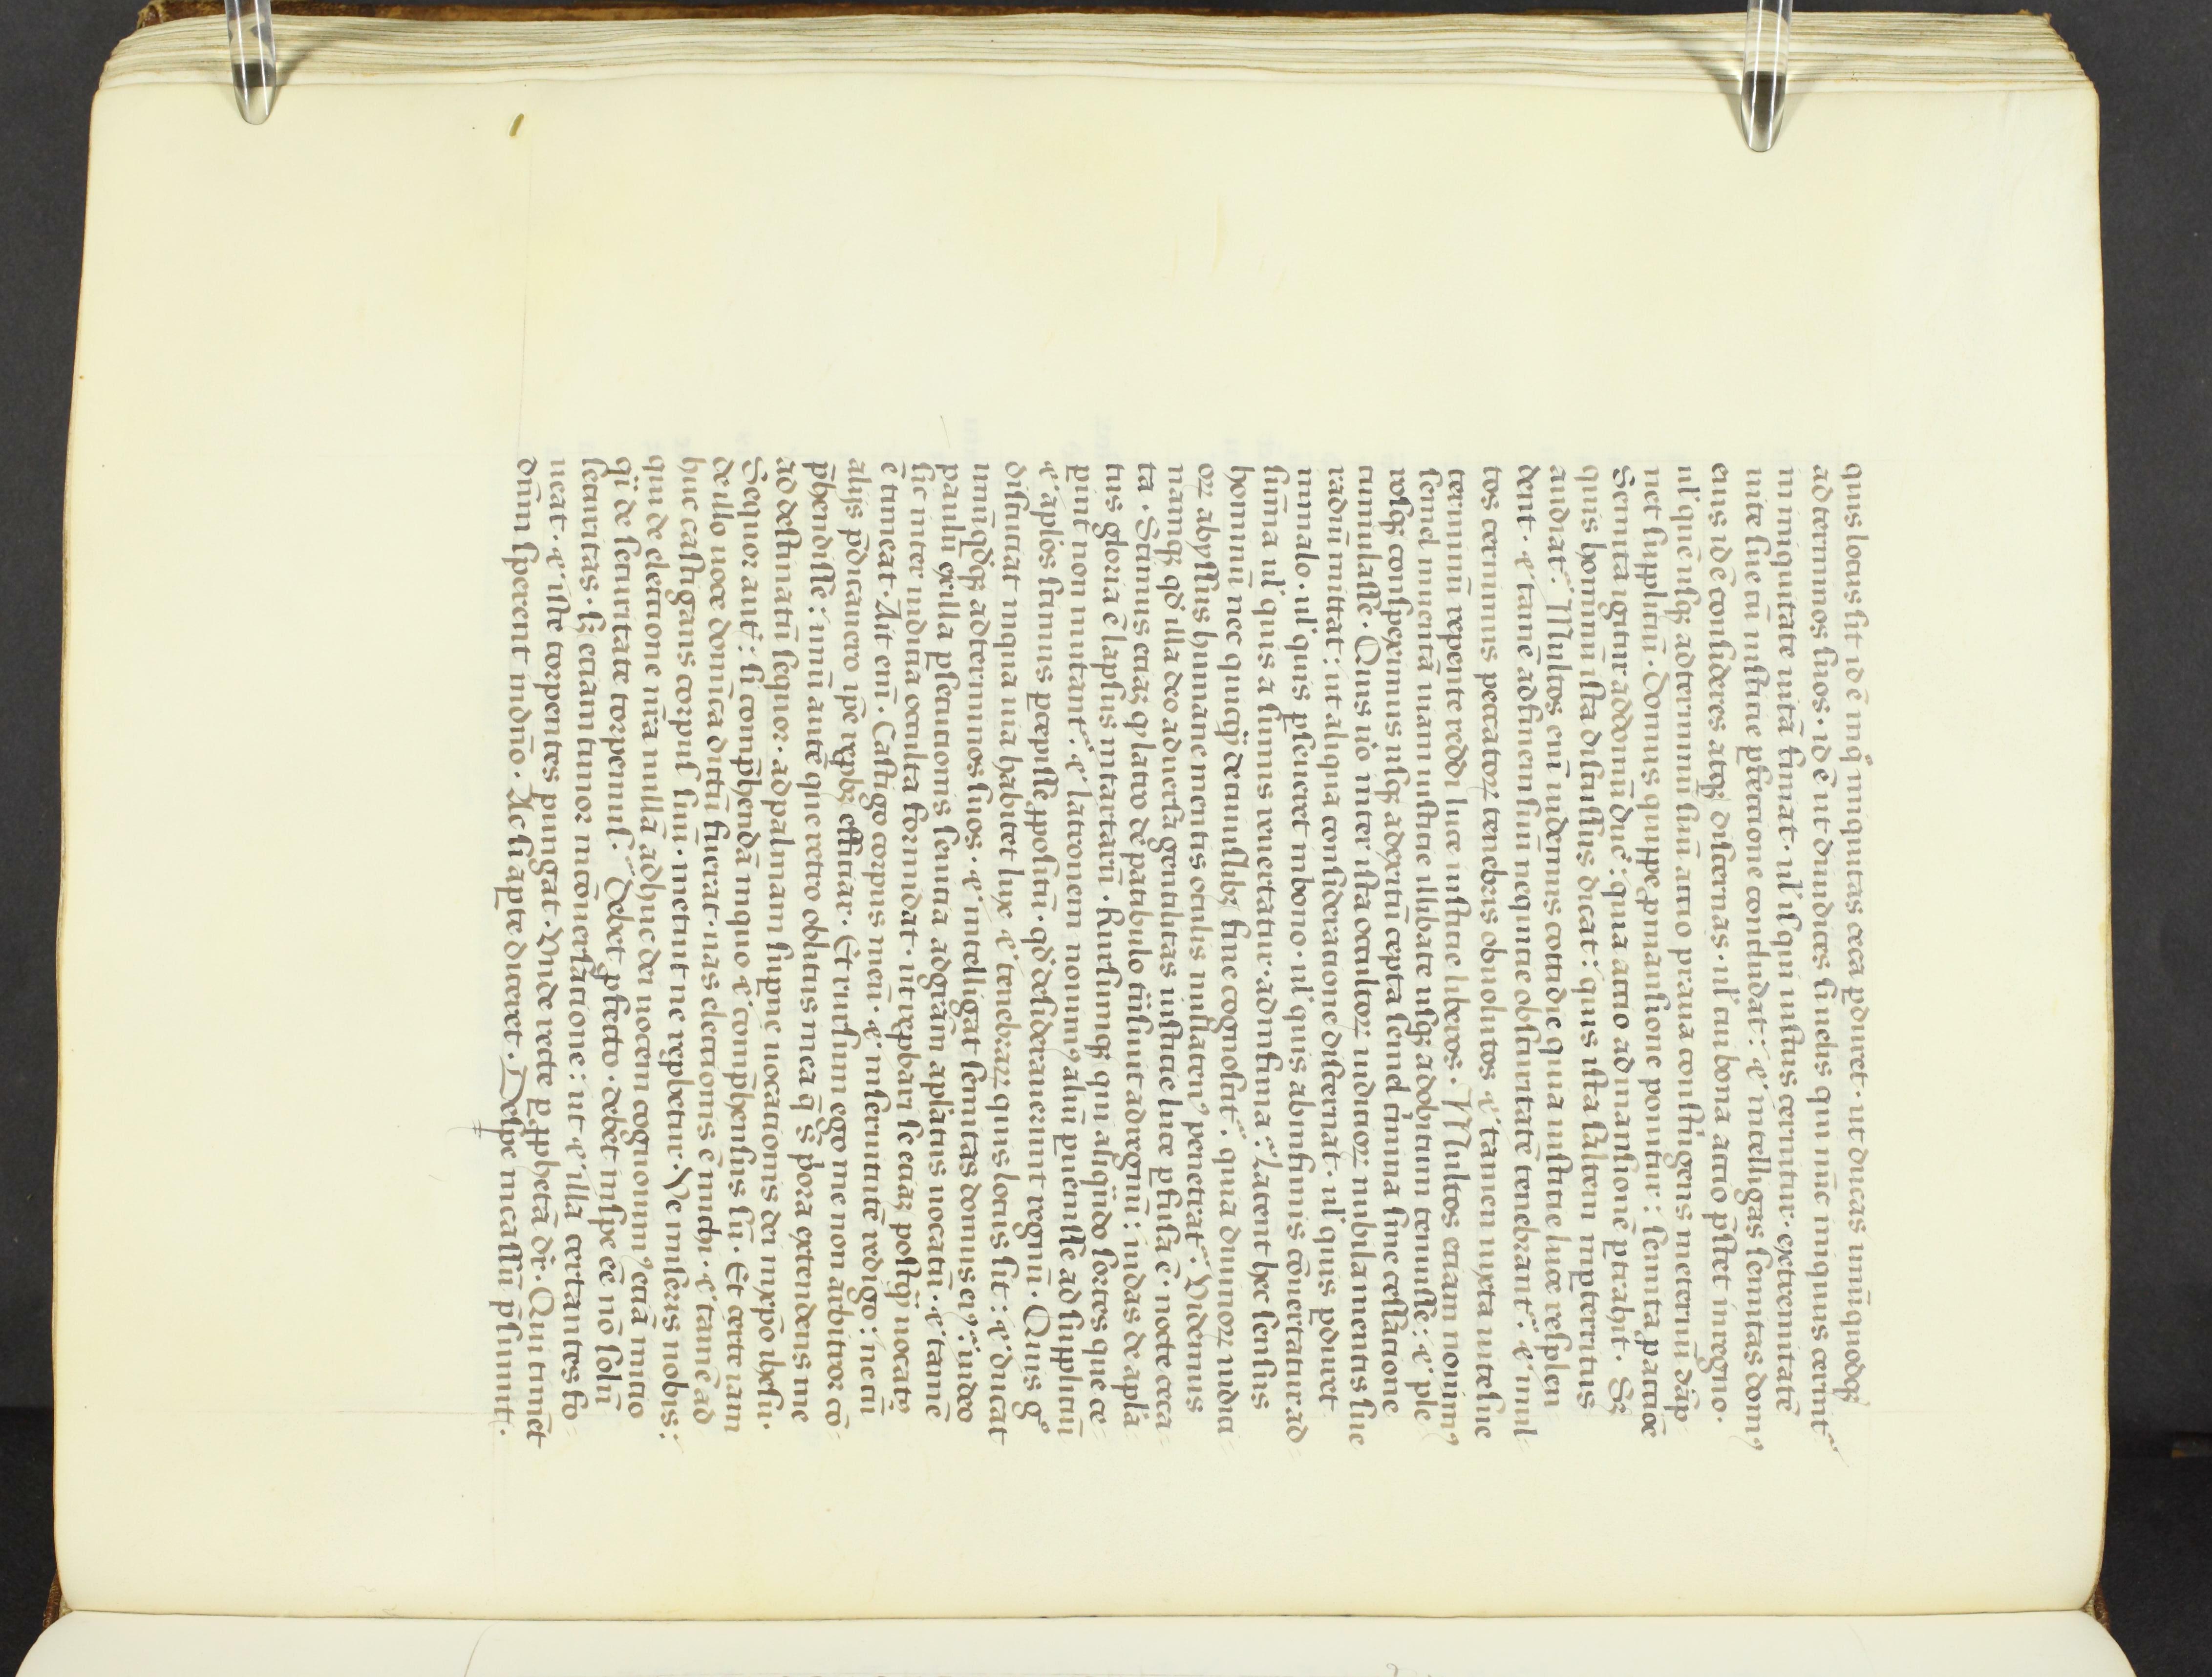 quis locus sit idē inq̊ iniquitas ceca pdiuret. ut ducas unūquodq;
ad terminos suos. id ē ut diiudices si uel is qui nūc iniquus cernit᷑
in iniquitate uitā finiat. ul' is qui iustus cernitur. extremitatē
uite sue cū iustitie pfectione concludat: & intelligas semitas dom'
eius idē consideres atq; discernas. ul' cui bona actio p̄stet in regno.
ul' quē usq; ad terminum suū actio praua constringens in eternū dāp
net suppliciū. Domus quippe p mansione ponitur: semita p actiōe
Semita igitur ad domū ducit: quia actio ad mansionē ptrahit. Sꝫ
quis hominū ista discussus dicat: quis ista saltem impterritus
audiat: Multos enī uidemus cottidie qui iustitie luce resplen
dent. & tamē ad finem suū nequitie obscuritate tenebrant᷑: & mul=
tos cernimus peccatoꝝ tenebris obuolutos. & tamen iuxta uite sue
terminū repente reddi luci iustitie liberos. Multos etiam nouim'
semel inuentā uiam iustitie illibate usq; ad obitum tenuisse: & ple
rosq; conspeximus usq; ad exitū cepta semel crimina sine cessatione
cumulasse. Quis uo inter ista occultoꝝ iudicioꝝ nubila mentis sue
radiū mittat: ut aliqua consideratione discernat. ul' quis pduret
in malo. ul' quis pseueret in bono. ul' quis ab infimis cōuertatur ad
sūma ul' quis a summis reuertatur ad infima: Latent hec sensus
hominū nec quicq̄ de cuiuslibꝫ fine cognoscit᷑. quia diuinoꝝ iudici=
oꝝ abyssus humane mentis oculis nullaten' penetrat᷑. Videmus
namq; qd' illa deo aduersa gentilitas iustitie luce pfusa ē. & iudea
ta. Scimus etiaꝫ q latro de patibulo trāsiuit ad regnū: iudas de apl'a
tus gloria ē lapsus in tartarū. Rursumq; qui aliqn̄do sortes que ce=
pint non mutant᷑: & latronem nouim' aliū puenisse ad suppliciū
& ap̄los scimus pcepisse ppositū. qd' desiderauerunt regnū. Quis gͦ
discutiat in qua uia habitet lux & tenebraꝝ quis locus sit: & ducat
unūqdq; ad terminos suos. & intelligat semitas domus ei': uideo
paulū ex illa psecutionis seuitia ad grām ap̄latus uocatū. & tamē
sic inter iudicia occulta formidat. ut repbari se etiaꝫ postq̄ uocat'
ē timeat. Ait enī. Castigo corpus meū. & in seruitutē redigo: ne cū
aliis pdicauero ip̄e repb' efficiar. Et rursum ego me non arbitror cō=
phendisse: unū autē que retro oblitus in ea q̄ s̄ priora extendens me
ad destinatū sequor. ad palmam supne uocationis dei in xp̄o ihesu.
Sequor aut: si cōphendā in quo & comphensus sū. Et certe iam
de illo uoce dominica dictū fuerat. uas electionis ē michi. & tamē ad
huc castigans corpus suū. metuit ne repbetur. Ve miseris nobis:
qui de electione nr̄a nullā adhuc dei uocem cognouim' & iā in otio
q̄i de securitate torpemus. Debet pfecto. debet in spe eē nō solū
securitas. sꝫ etiam timor in cōuersatione: ut & illa certantes fo=
ueat. & iste torpentes pungat. Vnde recte p pphetā dr̄. Qui timēt
dn̄m sperent in dn̄o. Ac si apte diceret. De spe incassū p̄sumit.